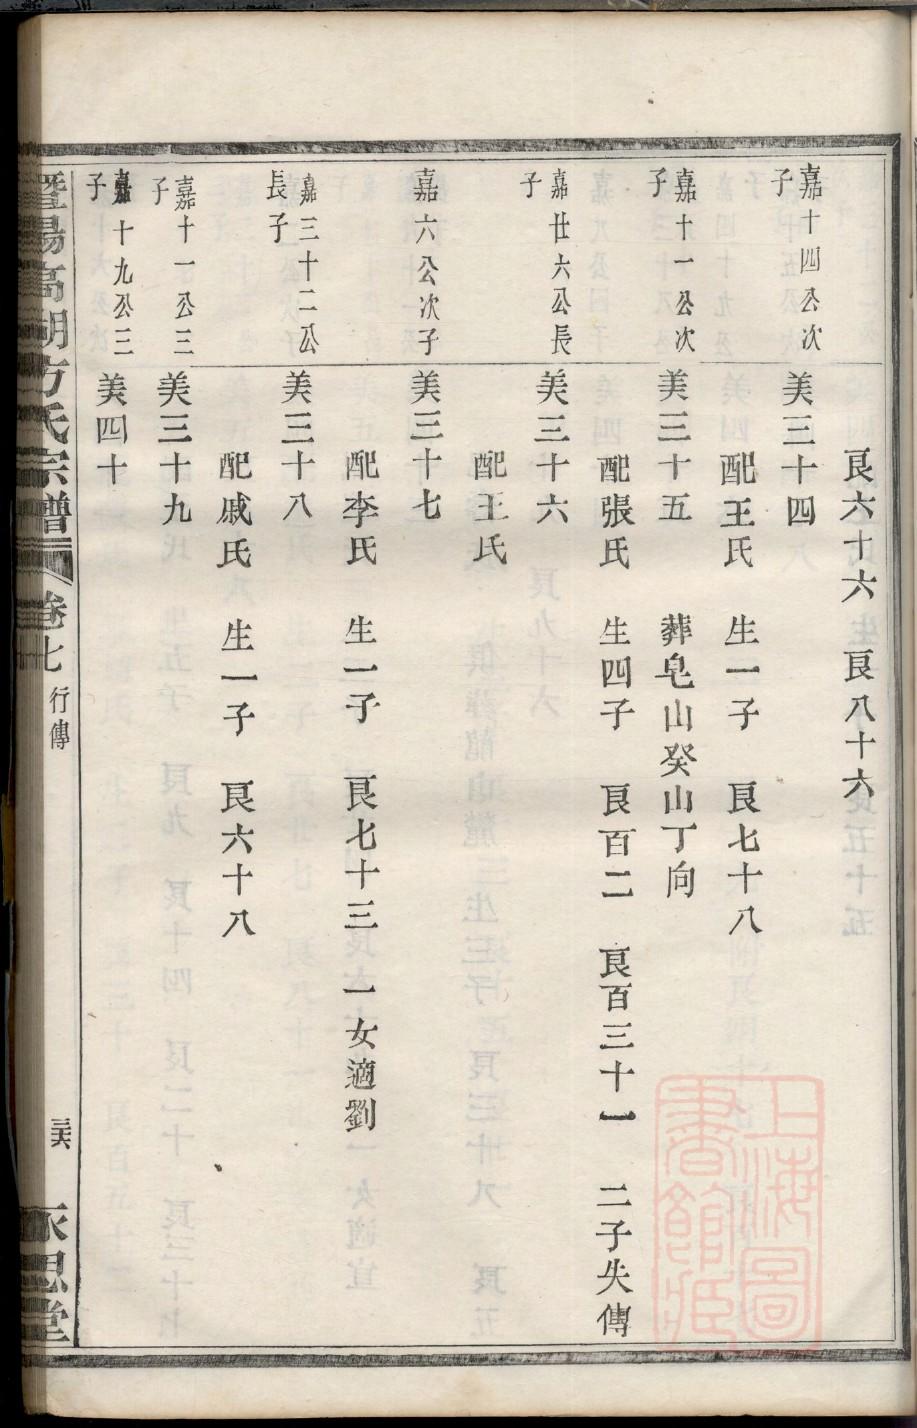 艮六十六 艮八十六
嘉十四公次子
美三十四
配王氏 生一子 艮七十八
嘉十一公次子
美三十五 葬皂山癸山丁向
配張氏 生四子 艮百二 艮百三十一 二子失傳
嘉廿六公長子
美三十六
配王氏
嘉六公次子
美三十七
配李氏 生一子 艮七十三 一女適劉
嘉三十二公長子
美三十八
配戚氏 生一子 艮六十八
嘉十一公三子
美三十九
嘉十九公三子
美四十
暨陽高湖方氏宗譜 卷七 行傳 三六 永思堂
上海圖書館藏